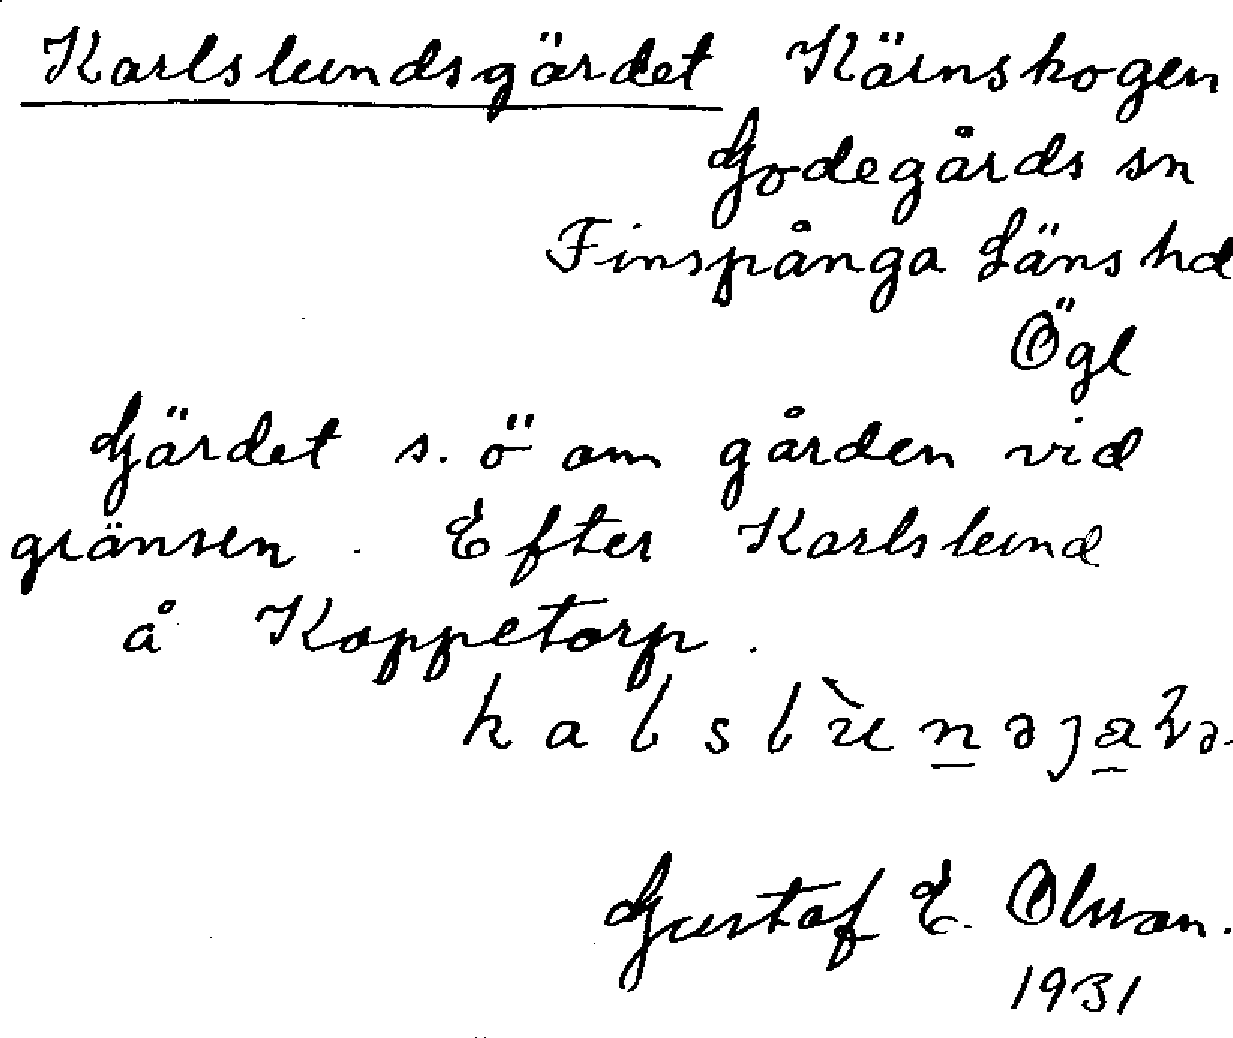 Karlslundsgärdet Kärnskogen
Godegårds sn
Finspånga Läns hd
Ögl
Gärdet s. ö om gården vid
gränsen. Efter Karlslund
å Koppetorp.
Gustaf E. Olsson.
1931